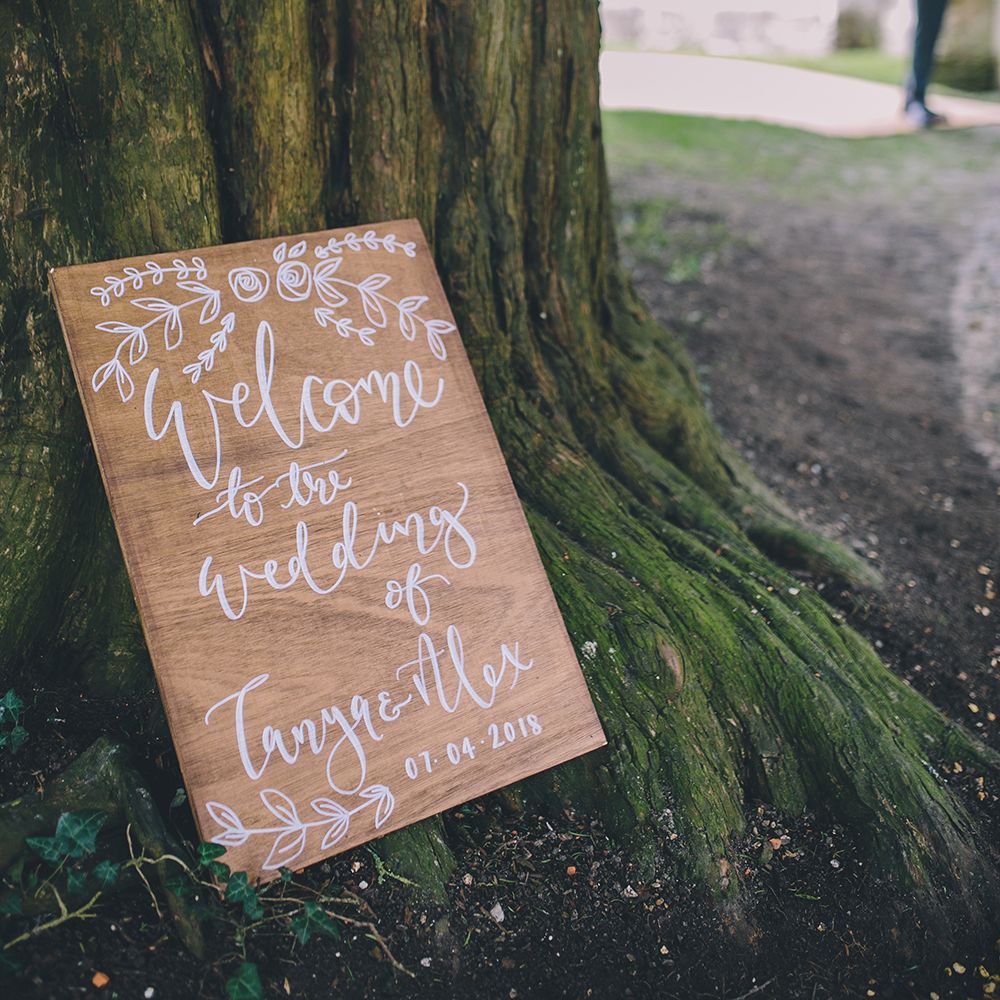 Welcome
to the
wedding
of
Tanya & Alex
07.04.2018